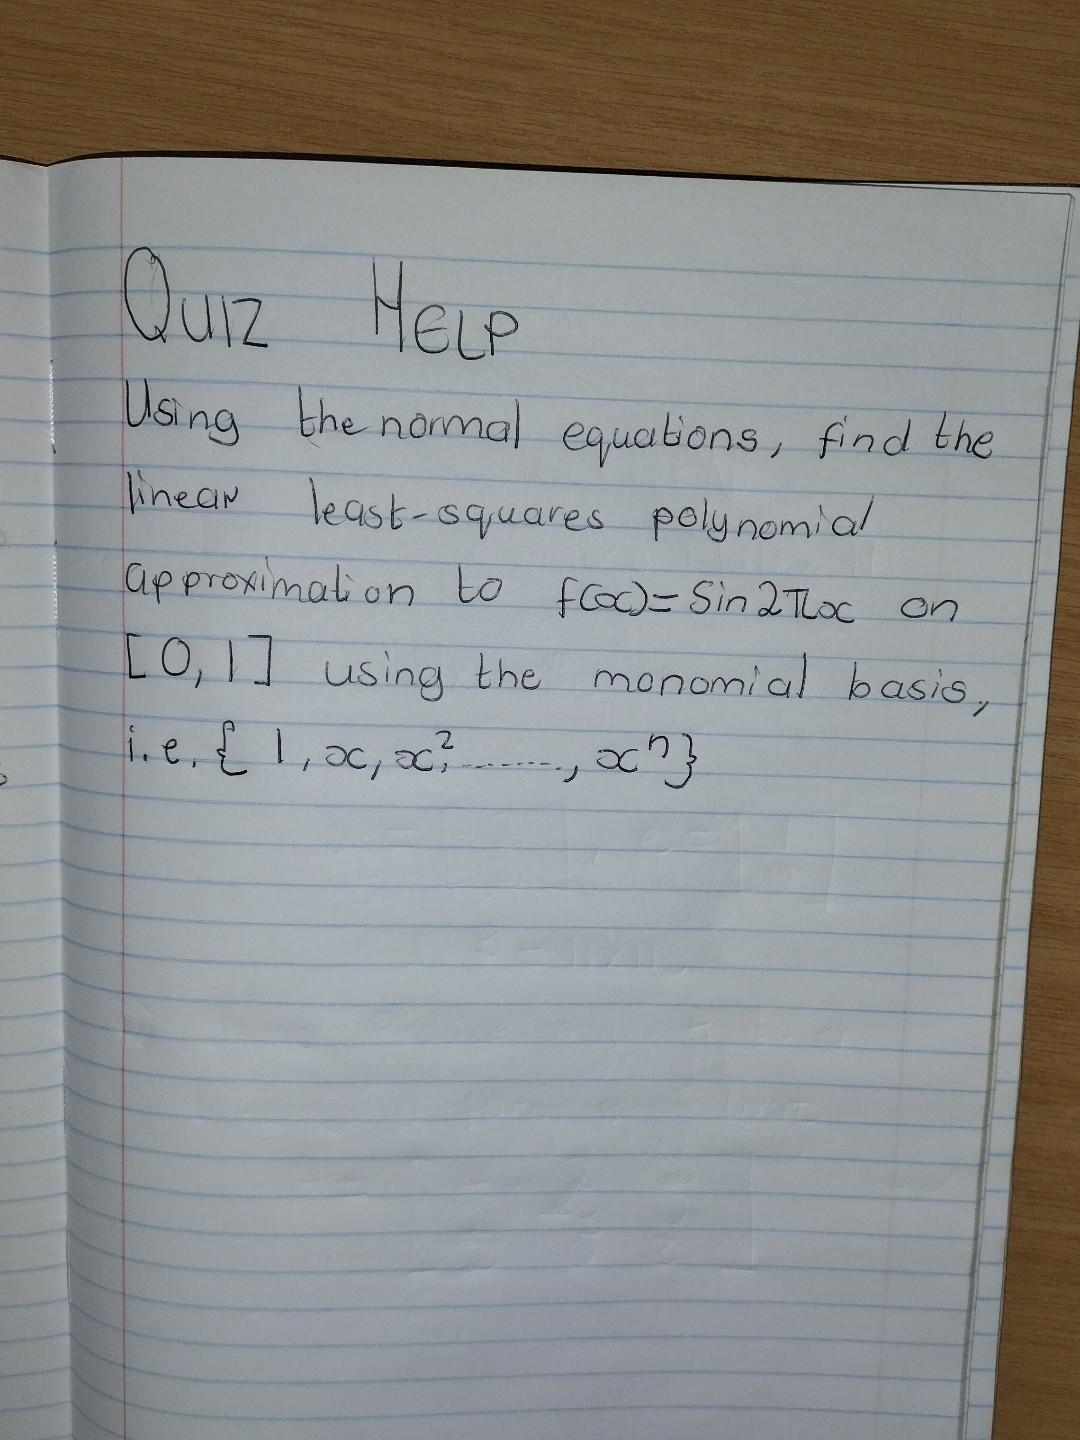 QUIZ HELP
Using the normal equations, find the
linear least-squares polynomial
approximation to f(x)= Sin2πx on
[0,1] using the monomial basis,
i.e. { 1, x, x², ......., xⁿ}